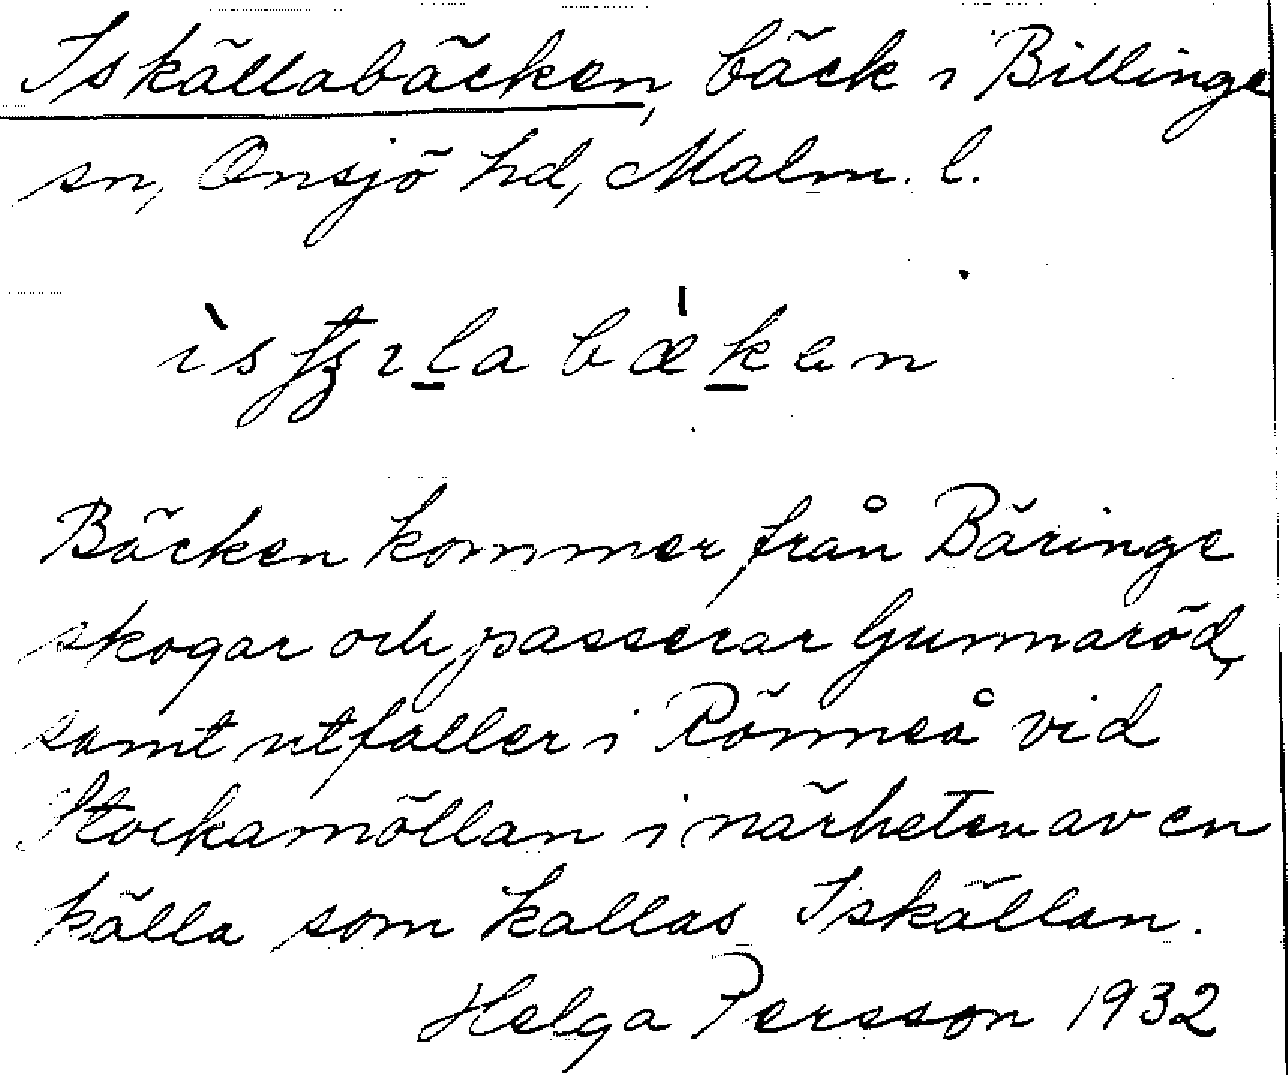 Iskällabäcken, bäck i Billinge
sn, Onsjö hd, Malm. l.
Bäcken kommer från Bäringe
skogar och passerar Gunnaröd,
samt utfaller i Rönneå vid
Stockamöllan i närheten av en
källa som kallas Iskällan.
Helga Persson 1932